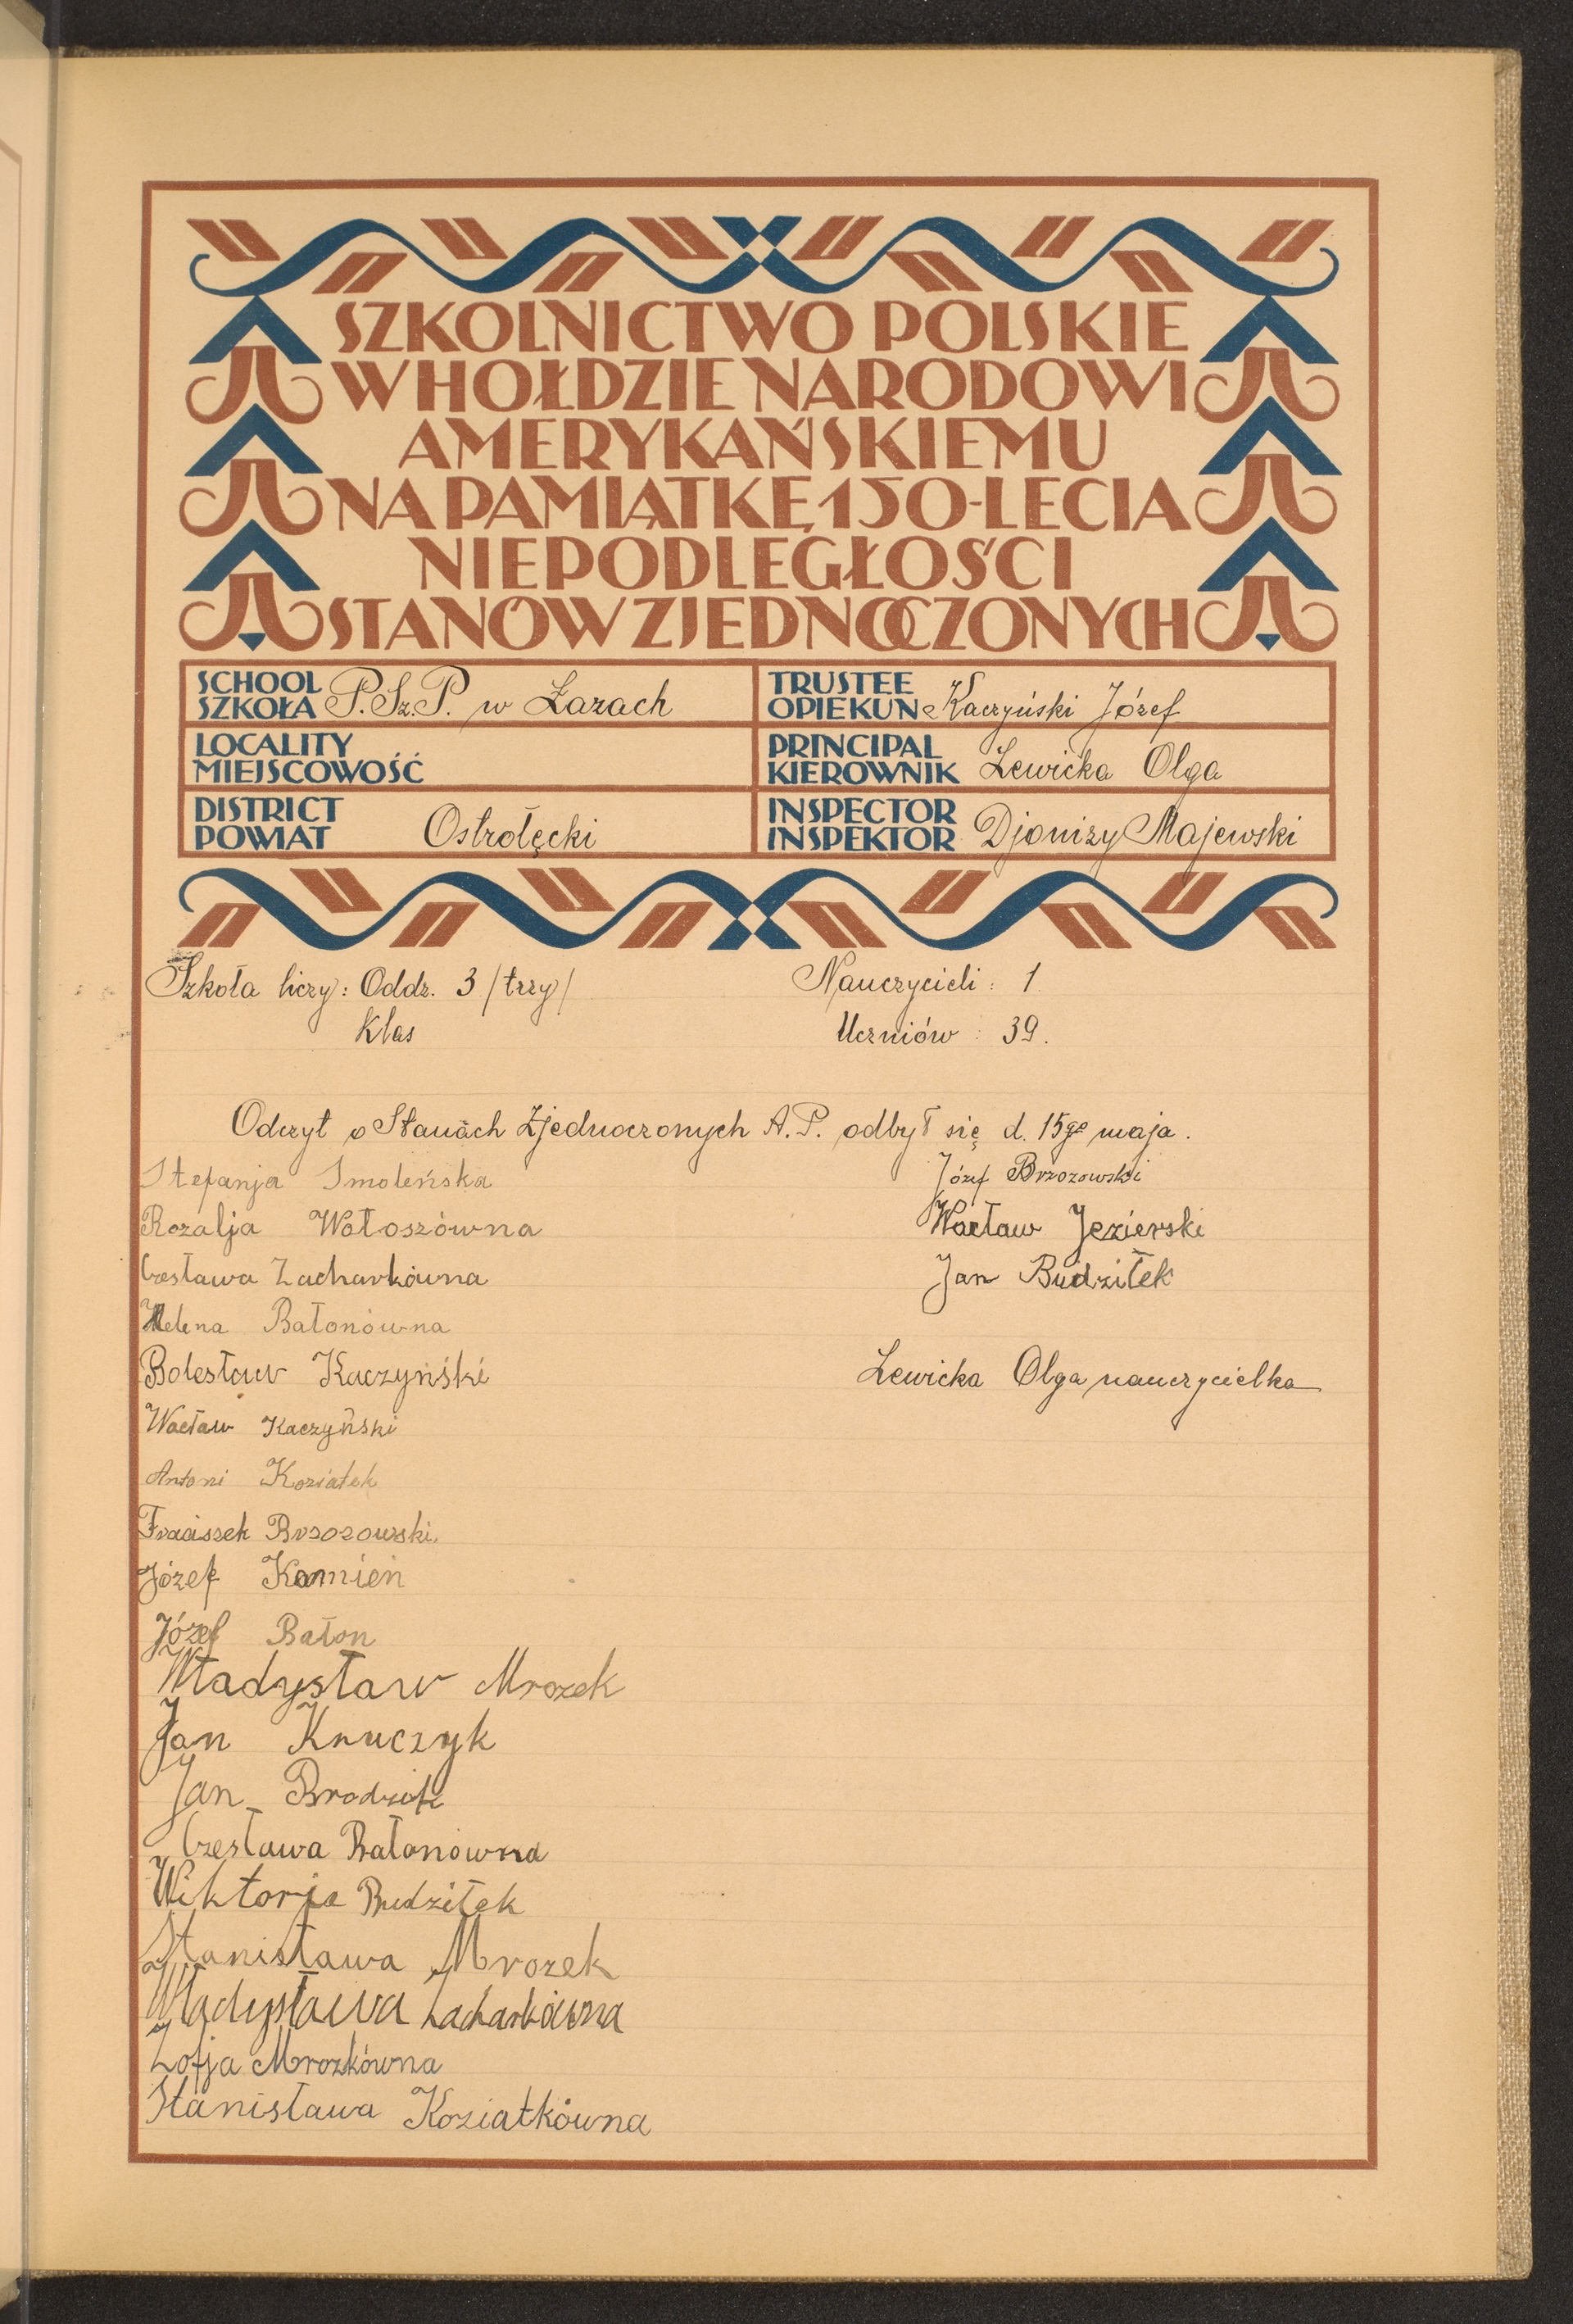 SZKOLNICTWO POLSKIE
W HOŁDZIE NARODOWI
AMERYKAŃSKIEMU
NA PAMIĄTKĘ 150-LECIA
NIEPODLEGŁOŚCI
STANÓW ZJEDNOCZONYCH
SCHOOL
SZKOŁA P.Sz.P. w Łazach
TRUSTEE
OPIEKUN Kaczyński Józef
LOCALITY
MIEJSCOWOŚĆ
PRINCIPAL
KIEROWNIK Lewicka Olga
DISTRICT
POWIAT Ostrołęcki
INSPECTOR
INSPEKTOR Djonizy Majewski
Szkoła liczy: Oddz. 3 /trzy/ Nauczycieli: 1
Klas Uczniów: 39.
Odczyt o Stanach Zjednoczonych A.P. odbył się d. 15go maja.
Stefanja Smoleńska
Rozalja Wołoszówna
Czesława Zacharkówna
Helena Bałonówna
Bolesław Kaczyński
Wacław Kaczyński
Antoni Koziatek
Fraciszek Brzozowski.
Józef Kamień
Józef Bałon
Władysław Mrozek
Jan Kruczyk
Jan Brodzik
Czesława Bałonówna
Wiktorja Budziłek
Stanisława Mrozek
Władysława Zacharkówna
Zofja Mrozkówna
Stanisława Koziatkówna
Józef Brzozowski
Wacław Jezierski
Jan Budziłek
Lewicka Olga nauczycielka